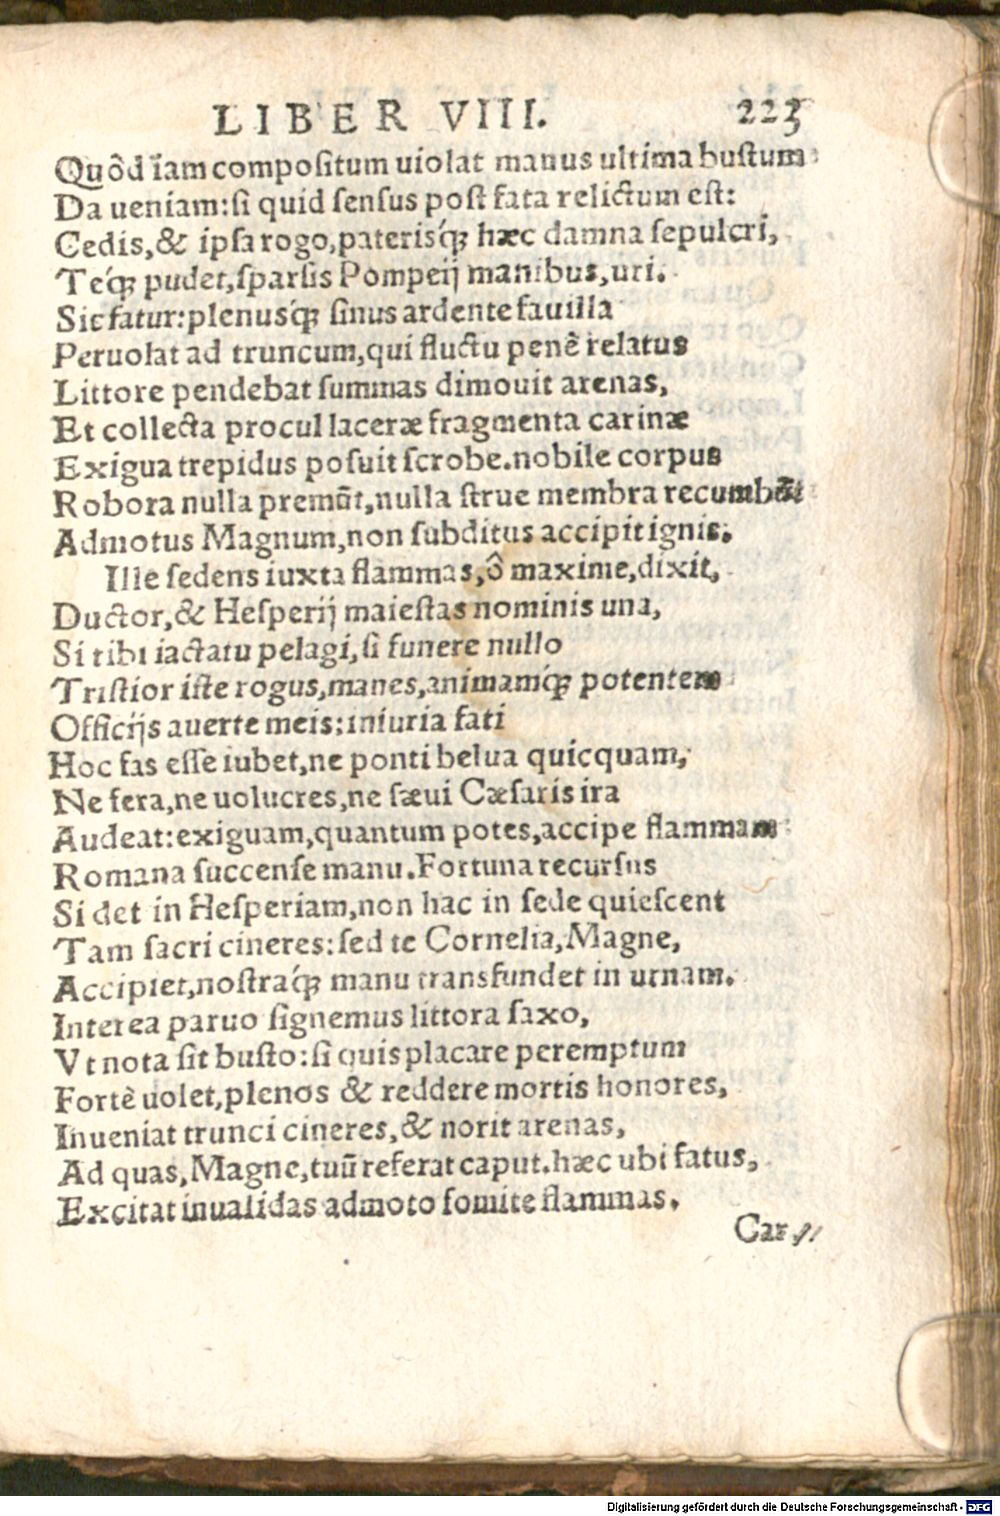 LIBER VIII. 223
Quôd iam compositum uiolat manus ultima bustum:
Da ueniam: si quid sensus post fata relictum est:
Cedis, & ipsa rogo, paterisq́; hæc damna sepulcri,
Teq́; pudet, sparsis Pompeij manibus, uri.
Sic fatur: plenusq́; sinus ardente fauilla
Peruolat ad truncum, qui fluctu penè relatus
Littore pendebat summas dimouit arenas,
Et collecta procul laceræ fragmenta carinæ
Exigua trepidus posuit scrobe. nobile corpus
Robora nulla premũt, nulla strue membra recumbũt:
Admotus Magnum, non subditus accipit ignis.
Ille sedens iuxta flammas, ô maxime, dixit,
Ductor, & Hesperij maiestas nominis una,
Si tibi iactatu pelagi, si funere nullo
Tristior iste rogus, manes, animamq́; potentem
Officijs auerte meis; iniuria fati
Hoc fas esse iubet, ne ponti belua quicquam,
Ne fera, ne uolucres, ne sæui Cæsaris ira
Audeat: exiguam, quantum potes, accipe flammam
Romana succense manu. Fortuna recursus
Si det in Hesperiam, non hac in sede quiescent
Tam sacri cineres: sed te Cornelia, Magne,
Accipiet, nostraq́; manu transfundet in urnam.
Interea paruo signemus littora saxo,
Vt nota sit busto: si quis placare peremptum
Fortè uolet, plenos & reddere mortis honores,
Inueniat trunci cineres, & norit arenas,
Ad quas, Magne, tuũ referat caput. hæc ubi fatus,
Excitat inualidas admoto fomite flammas.
Car
Digitalisierung gefördert durch die Deutsche Forschungsgemeinschaft - DFG